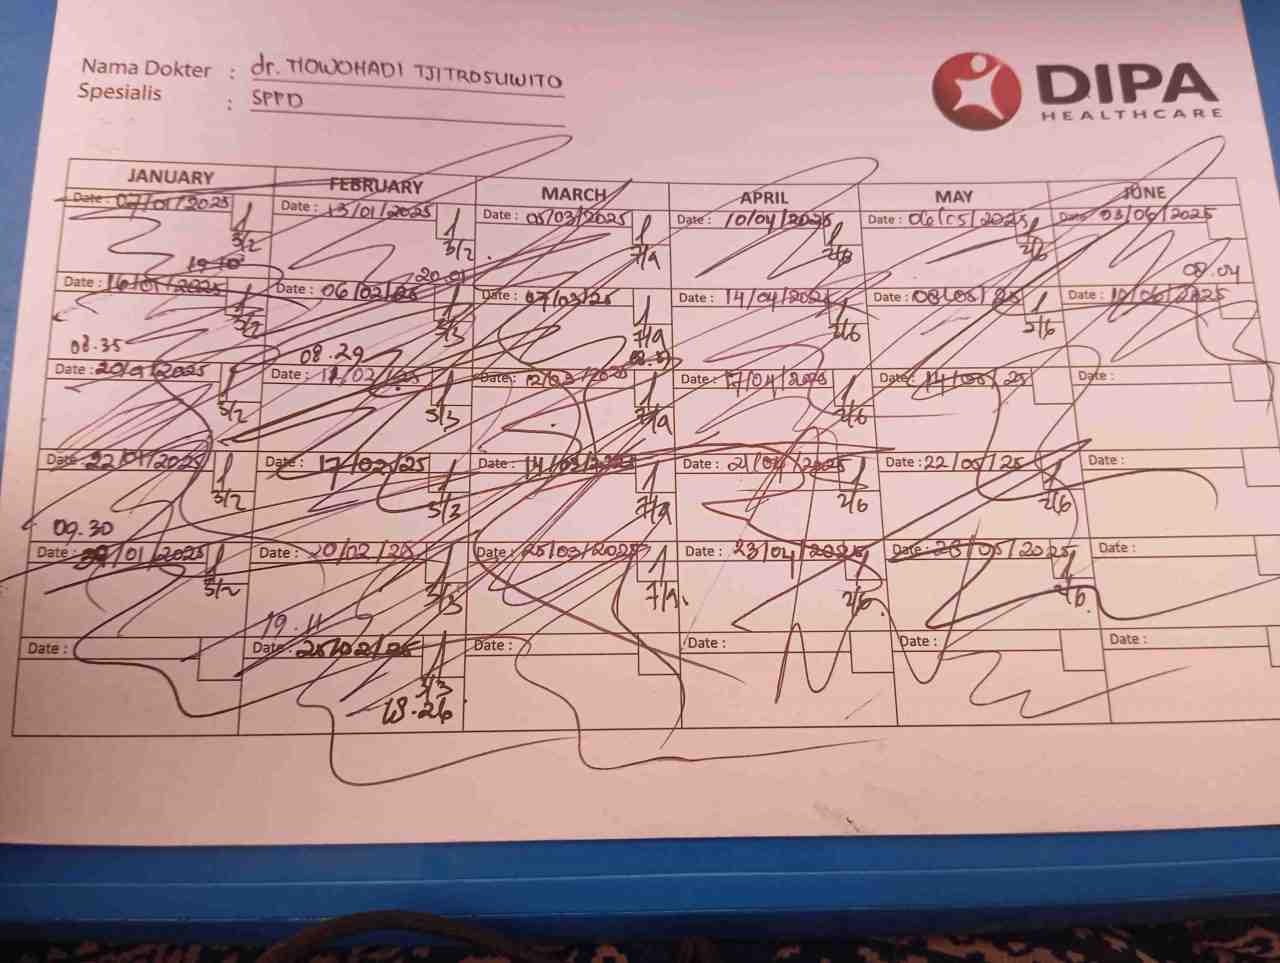 Nama Dokter : dr. TIOWOHADI TJITROSUWITO
Spesialis : SPPD
DIPA
HEALTHCARE
JANUARY FEBRUARY MARCH APRIL MAY JUNE
Date : 07/01/2025 Date : 13/01/2025 Date : 05/03/2025 Date : 10/04/2025 Date : 06/05/2025 Date : 03/06/2025
3/2 3/2 7/4 2/6
08.04
Date : 16/01/2025 Date : 06/02/25 Date : 07/03/25 Date : 14/04/2025 Date : 08/05/25 Date : 10/06/2025
3/2 3/3 7/4 2/6 2/6
08.35 08.29
Date : 20/01/2025 Date : 12/02/25 Date : 12/03/2025 Date : 17/04/2025 Date : 14/05/25 Date :
3/2 3/3 7/4 2/6
Date : 22/01/2025 Date : 17/02/25 Date : 14/03/2025 Date : 21/04/2025 Date : 22/05/25 Date :
3/2 3/3 7/4 2/6 2/6
09.30
Date : /01/2025 Date : 20/02/25 Date : 25/03/2025 Date : 23/04/2025 Date : 26/05/2025 Date :
3/2 3/3 7/4 2/6 2/6
19.11
Date : Date : 25/02/25 Date : Date : Date : Date :
3/3
18.26